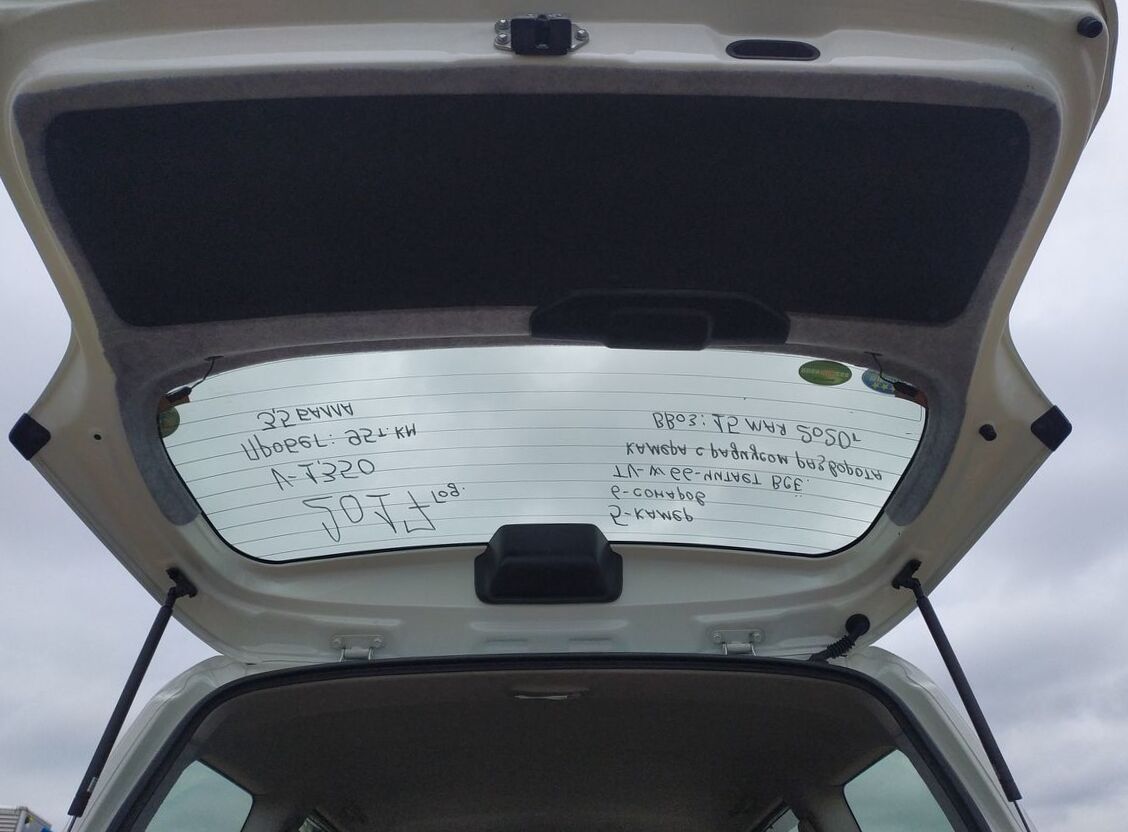 2017 год.
V-1350
Пробег: 95т.км
3,5 БАЛЛА
5-камер
6-сонаров
TV-W66-читает всё.
камера с радиусом разворота
Ввоз: 15 мая 2020г